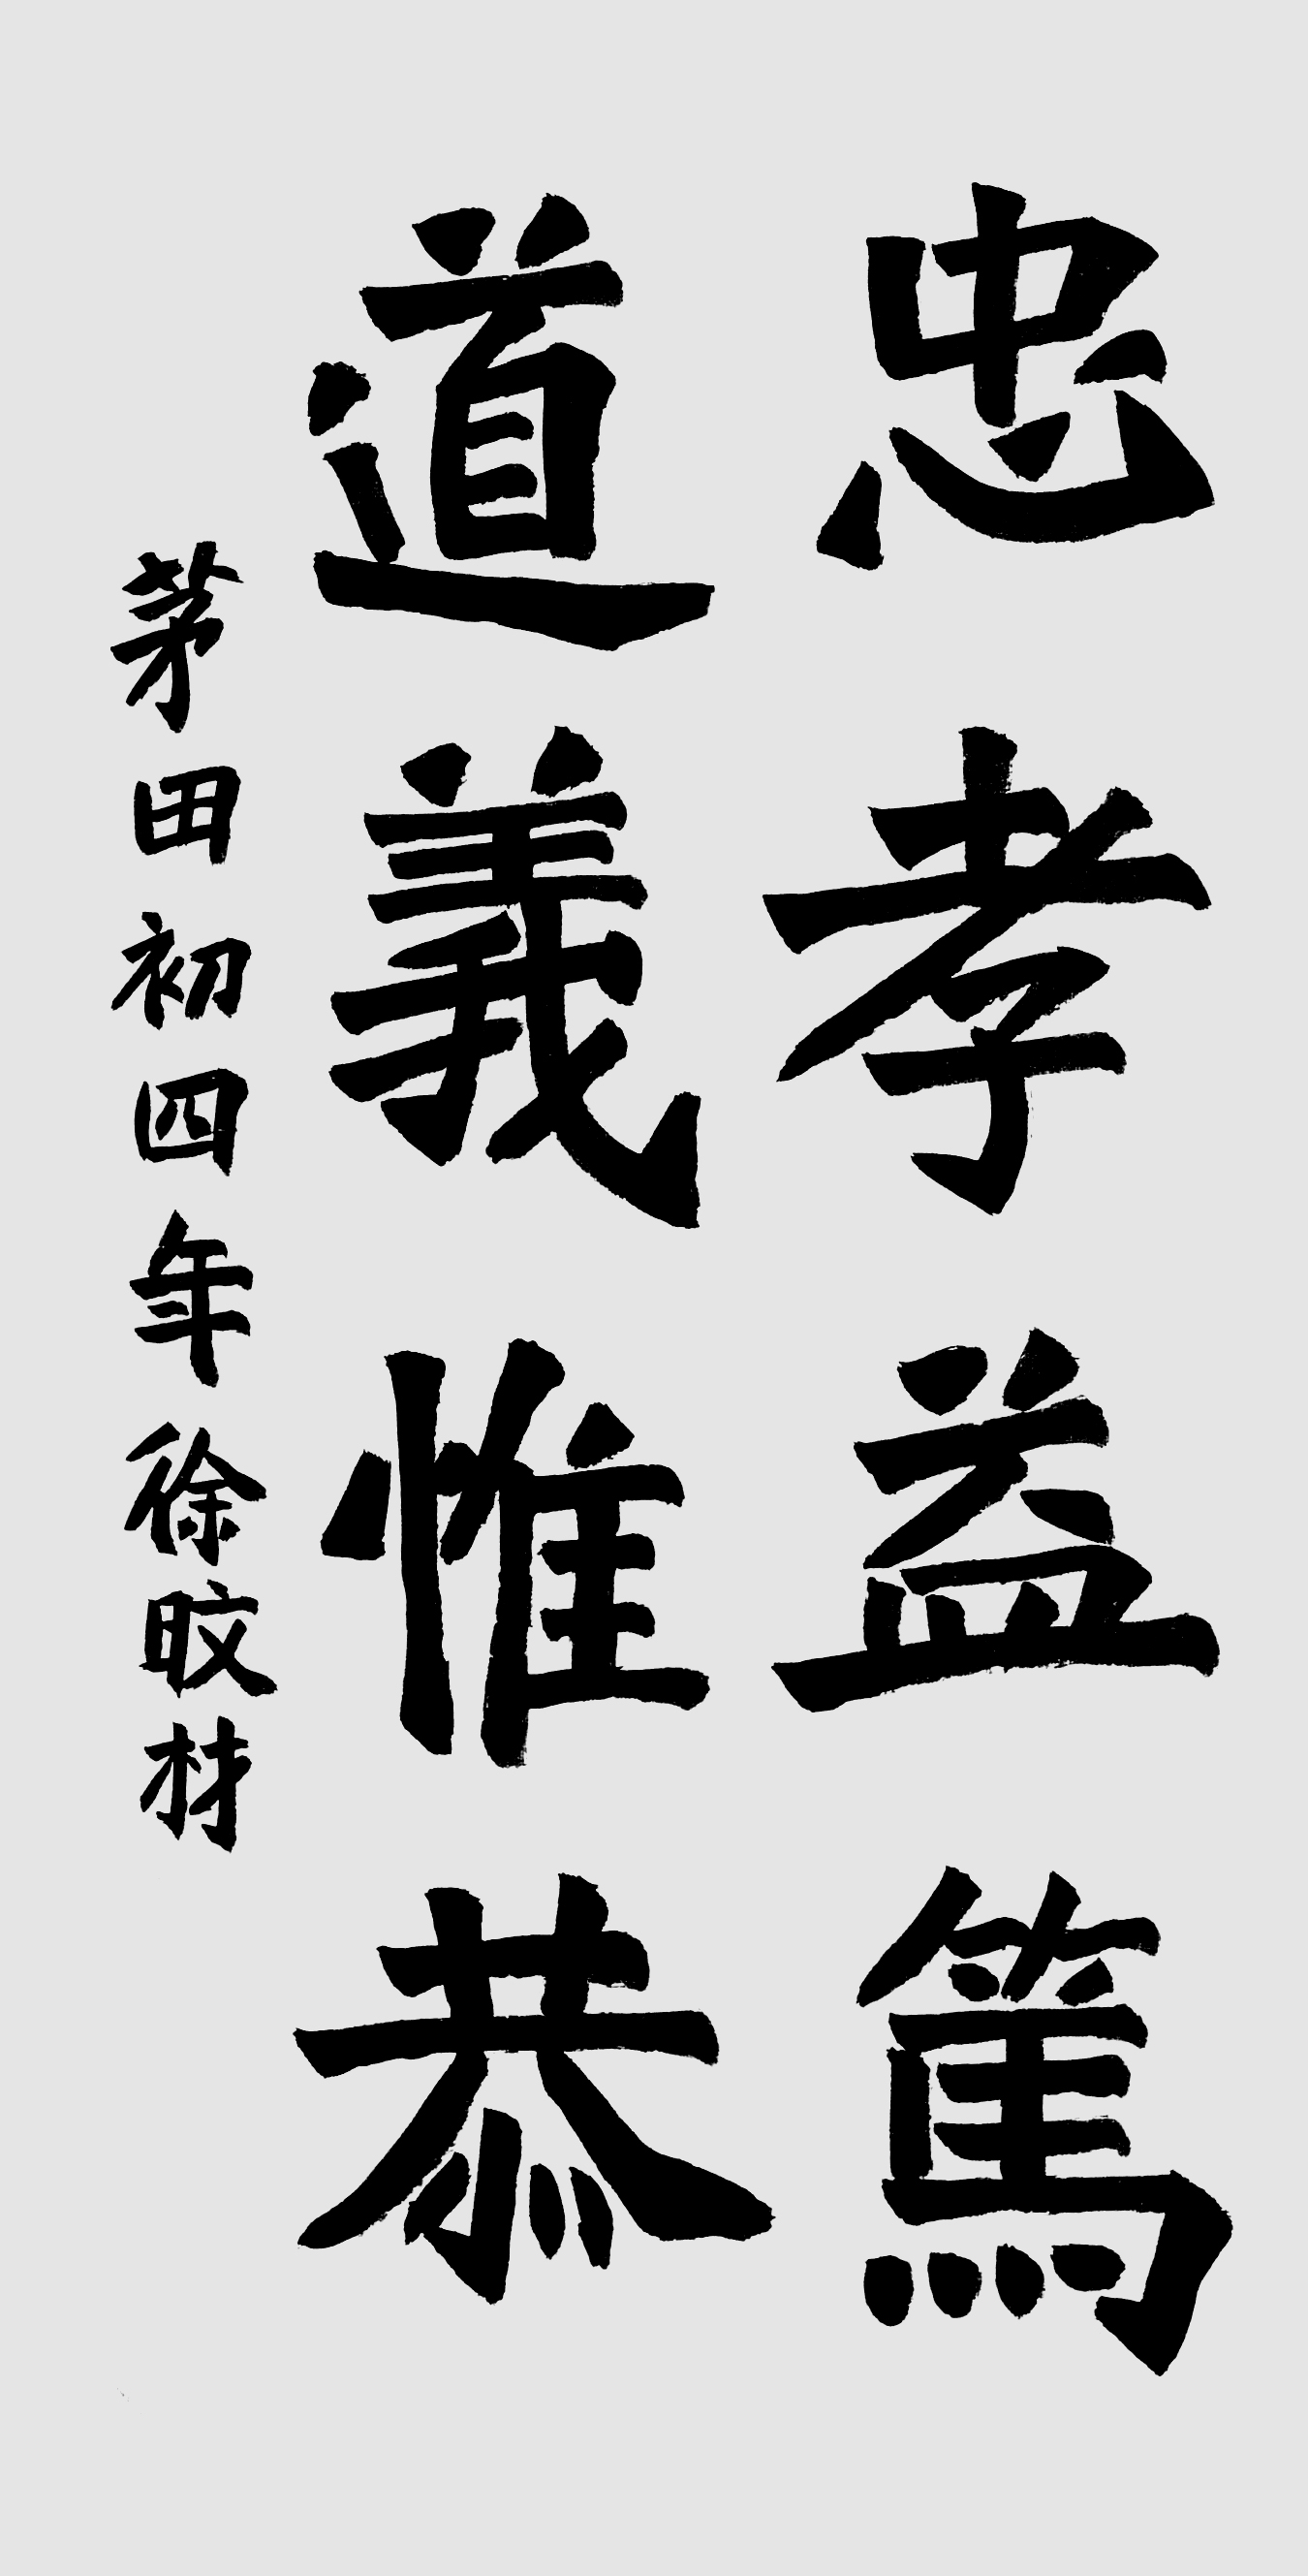 忠孝益篤
道義惟恭
茅田初四年徐旼材